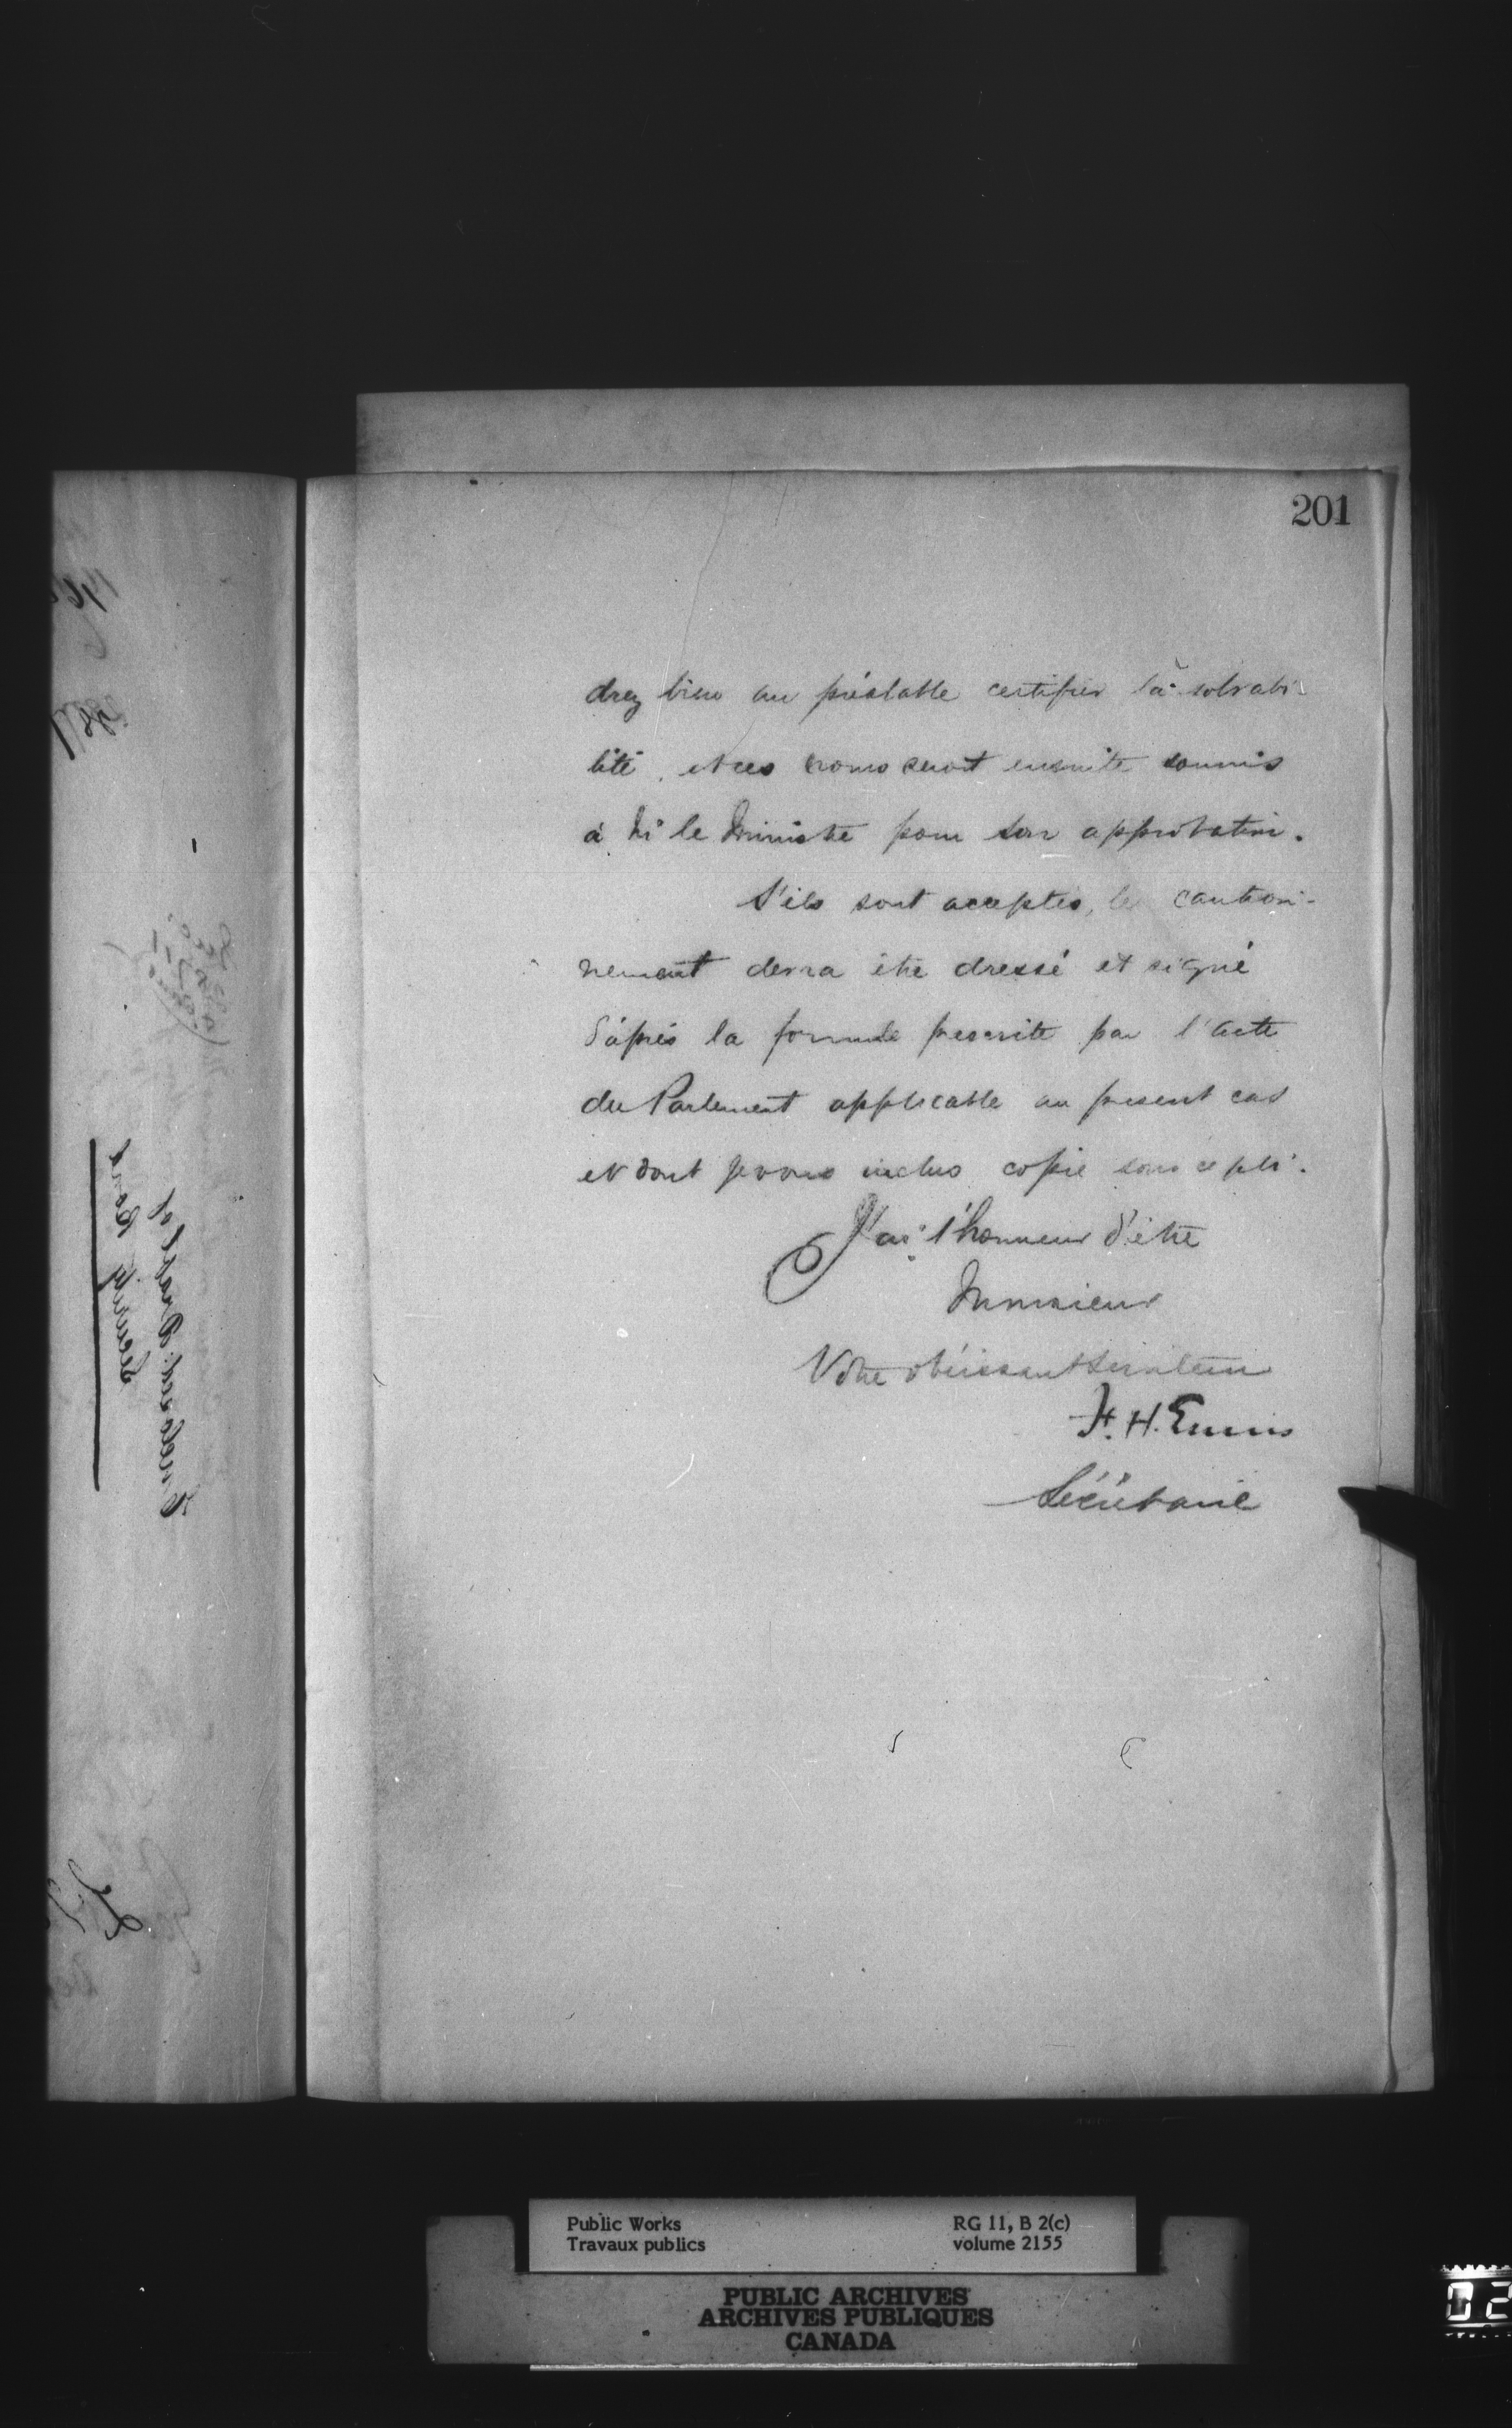 201
drez bien au préalable certifier la solvabi-
lité, et ces noms seront ensuite soumis
à M. le Ministre pour son approbation.
S'ils sont acceptés, le caution-
nement devra être dressé et signé
d'après la formule prescrite par l'acte
du Parlement applicable au present cas
et dont je vous inclus copie sous ce pli.
J'ai l'honneur d'être
Monsieur
Votre obéissant serviteur
F. H. Ennis
Secrétaire
Security Bond
Public Works
Travaux publics
RG 11, B 2(c)
volume 2155
PUBLIC ARCHIVES
ARCHIVES PUBLIQUES
CANADA
02